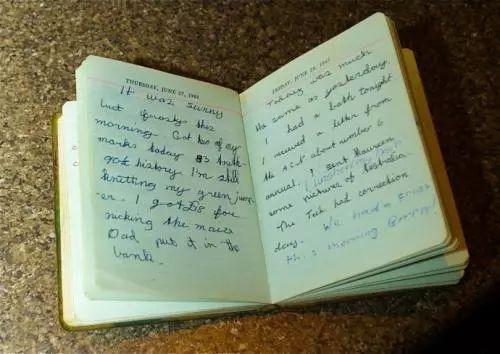 THURSDAY, JUNE 27, 1963
It was sunny
but frosty this
morning. Got two of my
marks today 83 
got history I'm still
knitting my green jump
er. I got £18 for
picking the maize
Dad put it in the
bank.
FRIDAY, JUNE 28, 1963
Today was much
the same as yesterday.
I had a bath tonight
I received a letter from
the A.C.N about number 6
annual. I sent Maureen
I watched my
some pictures of Australia.
The Tech had correction
day. We had a Frost
this morning Brrrr!